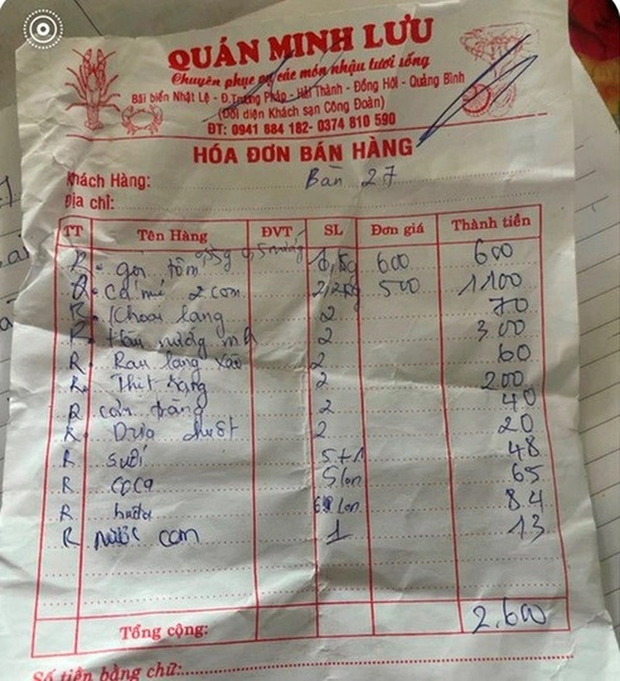 QUÁN MINH LƯU
Chuyên phục vụ các món nhậu tươi sống
Bãi biển Nhật Lệ - Đ.Trương Pháp - Hải Thành - Đồng Hới - Quảng Bình
(Đối diện Khách sạn Công Đoàn)
ĐT: 0941 684 182- 0374 810 590
HÓA ĐƠN BÁN HÀNG
Khách Hàng: Bàn 27
Địa chỉ:
TT Tên Hàng ĐVT SL Đơn giá Thành tiền
R gỏi tôm 600 600
R Cá mú 2 con 2,2kg 500 1100
R Khoai lang 2 70
R Hàu nướng mh 2 300
R Rau lang xào 2 60
R Thịt rang 2 200
R cơm trắng 2 40
R Dưa chuột 2 20
R suối 5+1 48
R coca 5 lon 65
R huda lon 84
R Nước cam 1 13
Tổng cộng: 2.600
Số tiền bằng chữ: